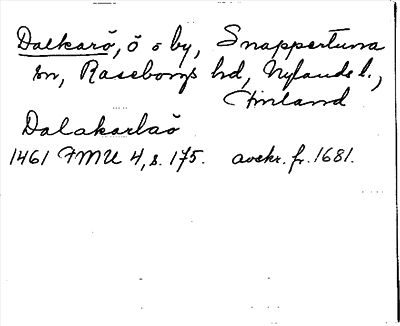 Dalkarö, ö o by, Snappertuna
sn, Raseborgs hd, Nylands l.,
Finland
Dalakarlaö
1461 FMU 4, s. 175. avskr. fr. 1681.